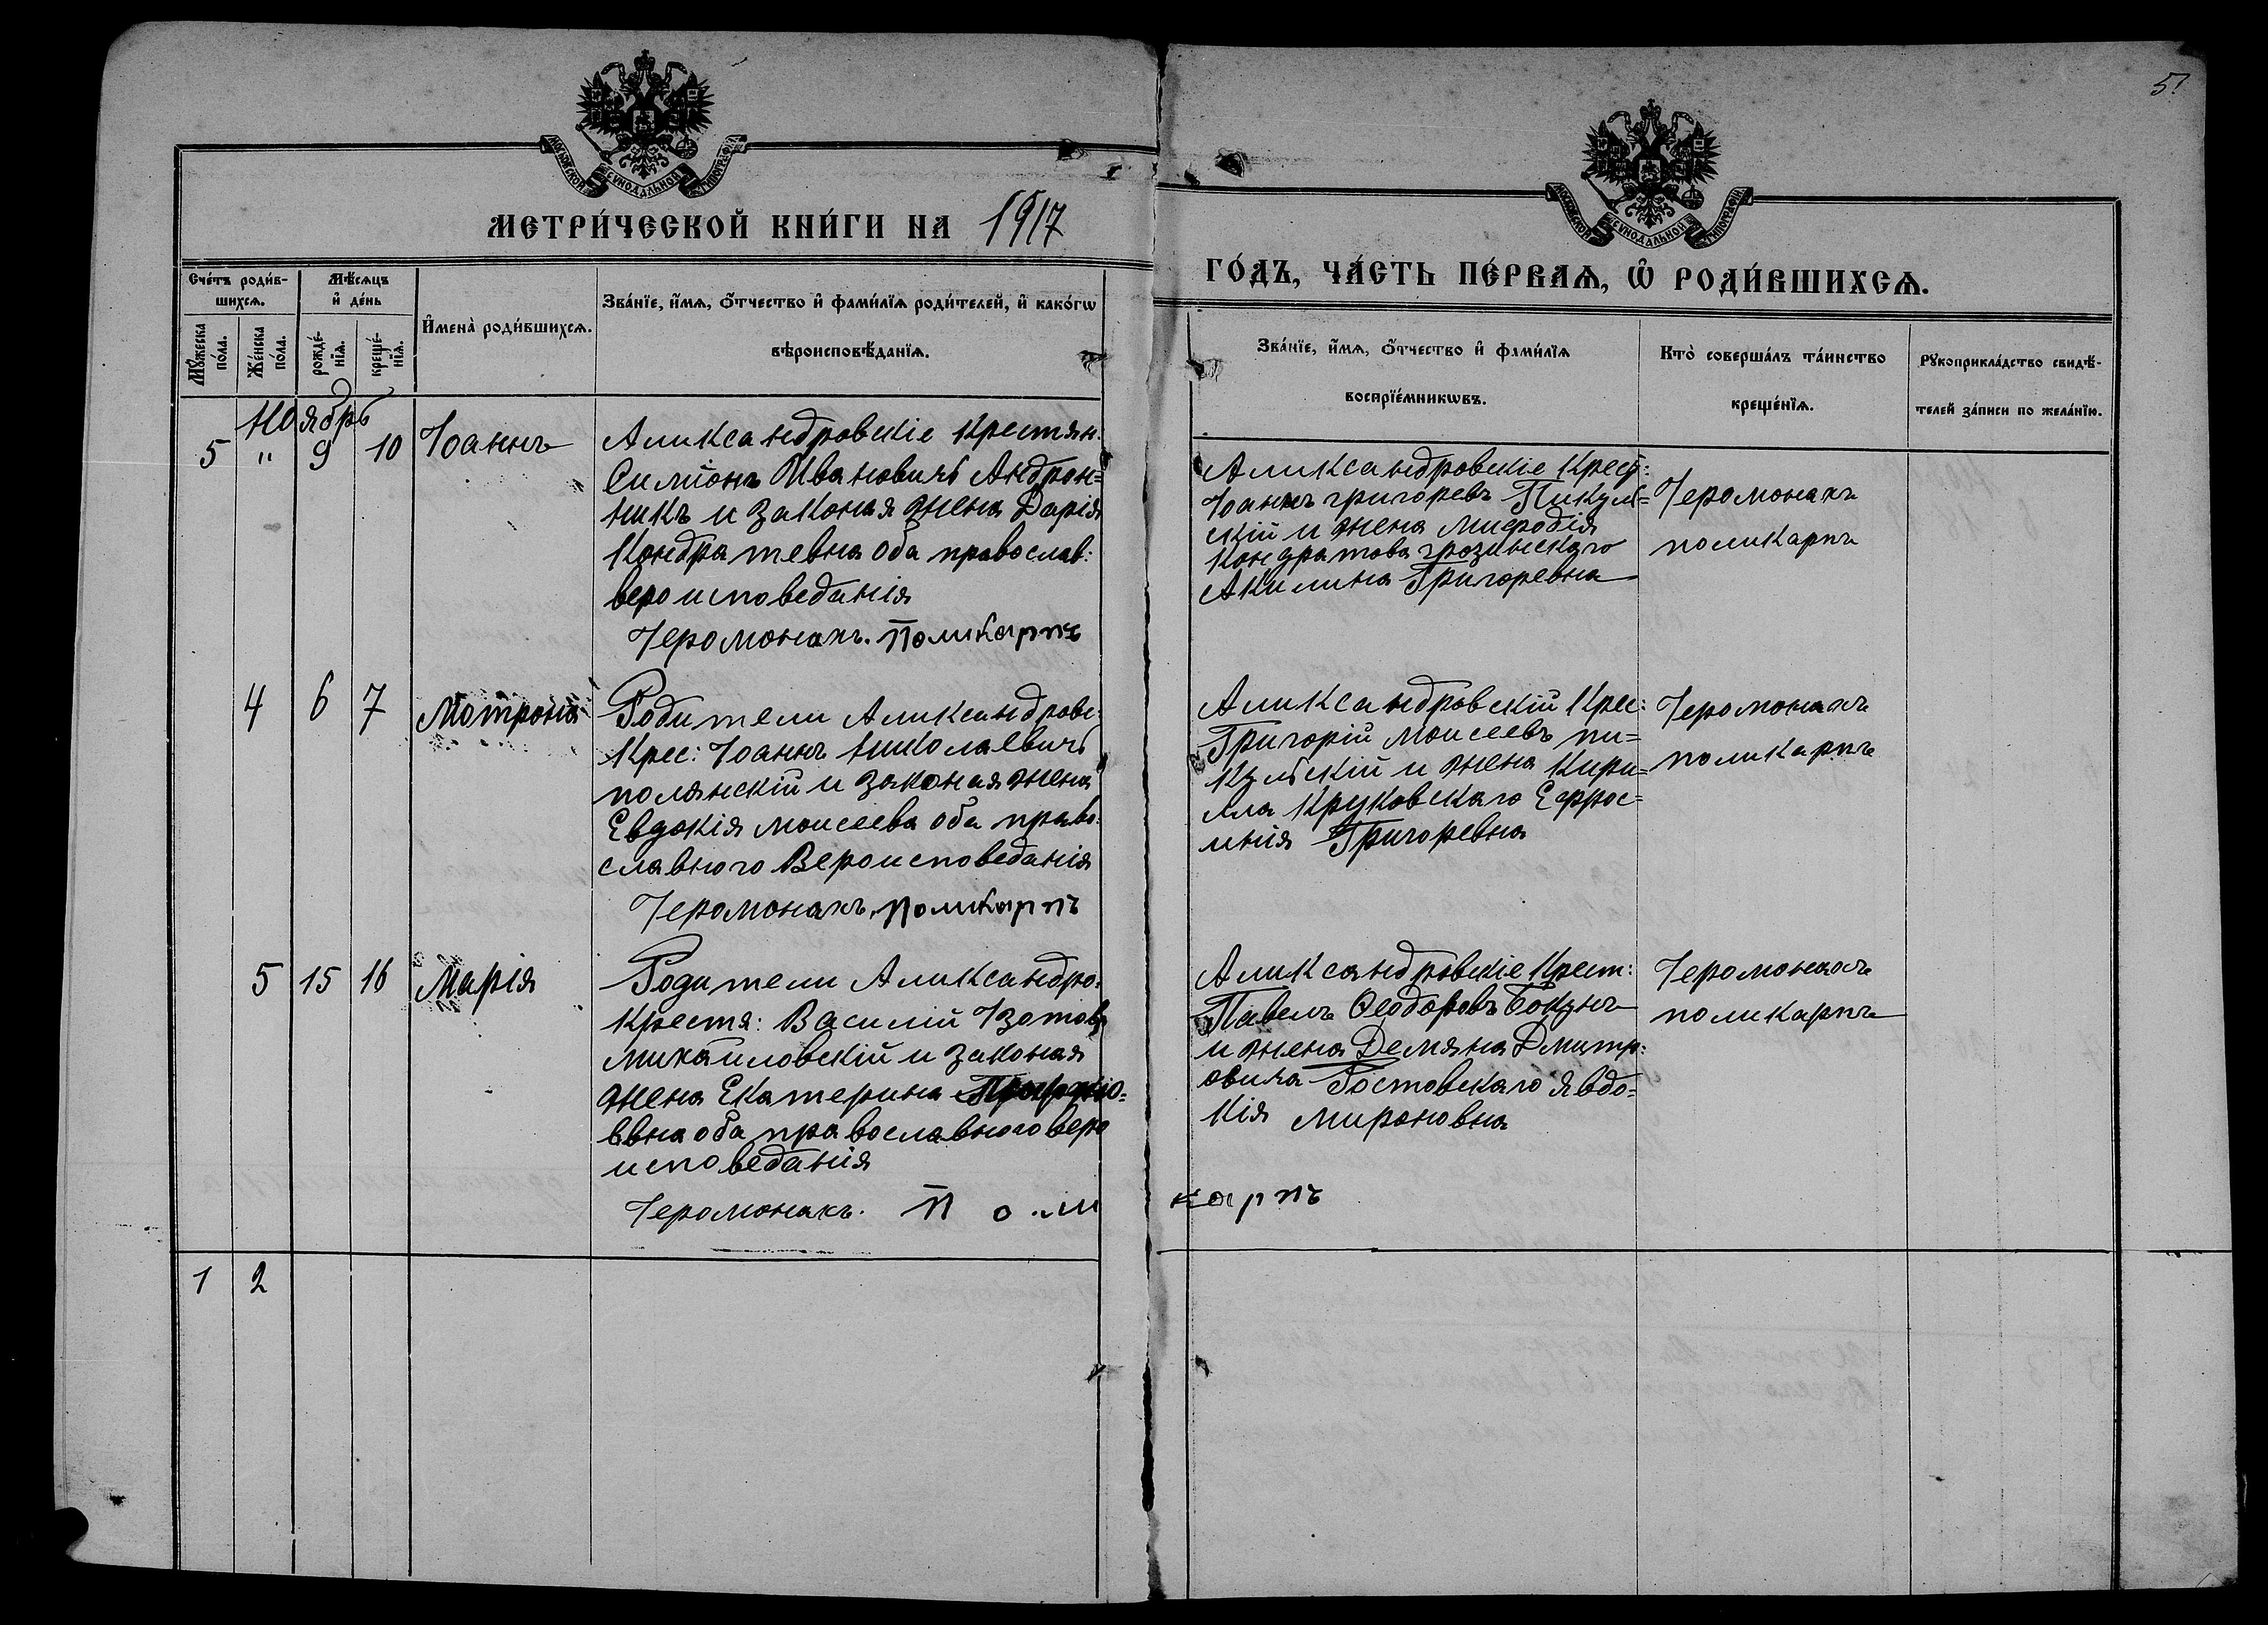 5!
МОСКОВСКОЙ СѴНОДАЛЬНОЙ ТИПОГРАФІИ
МОСКОВСКОЙ СѴНОДАЛЬНОЙ ТИПОГРАФІИ
МЕТРИ́ЧЕСКОЙ КНИ́ГИ НА 1917
ГО́ДЪ, ЧА́СТЬ ПЕ́РВАѦ, Ѡ҆ РОДИ́ВШИХСѦ.
Сче́тъ роди́в-
шихсѧ.
Мѣ́сѧцъ
и҆ де́нь
Мꙋ́жеска по́ла.
Же́нска по́ла.
рожде́-
нїѧ.
креще́-
нїѧ.
И҆мена̀ роди́вшихсѧ.
Зва́нїе, и҆́мѧ, ѻ҆́тчество и҆ фами́лїѧ роди́телей, и҆ како́гѡ
вѣроисповѣ́данїѧ.
Зва́нїе, и҆́мѧ, ѻ҆́тчество и҆ фами́лїѧ
воспрїе́мникѡвъ.
Кто̀ соверша́лъ та́инство
креще́нїѧ.
Рꙋкоприкла́дство свидѣ́-
телей за́писи по жела́нїю.
Ноябрь
5 " 9 10 Іоаннъ
Аликсандровскіе крестян.
Симіонъ Ивановичъ Андрон=
никъ и законая жена Дарія
Кондратевна оба православ:
вероисповеданія
Іеромонахъ. Поликарпъ
Аликсандровскіе Крест:
Іоаннъ григоревъ Пикуль=
скій и жена
Кондратова грозинскаго
Акилина Григоревна
Іеромонахъ
поликарпъ
4 6 7 Мотрона
Родители Аликсандровс:
Крес: Іоаннъ Николаевичъ
полянскій и законая жена
Евдокія моисеева оба право:
славного Вероисповеданія
Іеромонахъ. поликарпъ
Аликсандровскій Крес:
Григорій Моисеевъ пи=
кульскій и жена Кири=
лла Круковскаго Ефрос=
инія Григоревна
Іеромонахъ
поликарпъ
5 15 16 Марія
Родители Аликсандро:
Крестя: Василій Изотовъ
михаиловскій и законая
жена Екатерина
ввна оба православного веро
исповеданія
Іеромонахъ. Поли
карпъ
Аликсандровскіе Крест:
Павелъ Феодоровъ Бокунъ
и жена Демяна Дмитр:
овича Ростовскаго Явдо=
кія мироновна
Іеромонахъ
поликарпъ
1 2